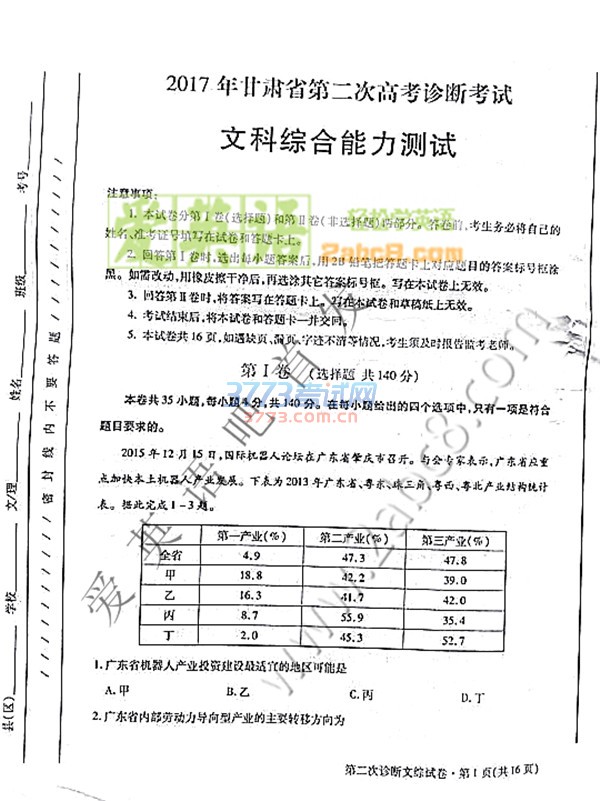 2017年甘肃省第二次高考诊断考试
文科综合能力测试
注意事项:
1. 本试卷分第Ⅰ卷(选择题)和第Ⅱ卷(非选择题)两部分。答卷前,考生务必将自己的
姓名、准考证号填写在试卷和答题卡上。
2. 回答第Ⅰ卷时,选出每小题答案后,用2B铅笔把答题卡上对应题目的答案标号框涂
黑。如需改动,用橡皮擦干净后,再选涂其它答案标号框。写在本试卷上无效。
3. 回答第Ⅱ卷时,将答案写在答题卡上。写在本试卷和草稿纸上无效。
4. 考试结束后,将本试卷和答题卡一并交回。
5. 本试卷共16页,如遇缺页、漏页、字迹不清等情况,考生须及时报告监考老师。
第Ⅰ卷 (选择题 共140分)
本卷共35小题,每小题4分,共140分。在每小题给出的四个选项中,只有一项是符合
题目要求的。
2015年12月15日,国际机器人论坛在广东省肇庆市召开。与会专家表示,广东省应重
点加快本土机器人产业发展。下表为2013年广东省、粤东、珠三角、粤西、粤北产业结构统计
表。据此完成1-3题。
第一产业(%) 第二产业(%) 第三产业(%)
全省 4.9 47.3 47.8
甲 18.8 42.2 39.0
乙 16.3 41.7 42.0
丙 8.7 55.9 35.4
丁 2.0 45.3 52.7
1. 广东省机器人产业投资建设最适宜的地区可能是
A. 甲 B. 乙 C. 丙 D. 丁
2. 广东省内部劳动力导向型产业的主要转移方向为
第二次诊断文综试卷·第1页(共16页)
县(区) 学校 文/理 姓名 班级 考号
密封线内不要答题
爱英语吧首发
www.2abc8.com
爱英语
轻松学英语
2abc8.com
3773考试网
3773.com.cn